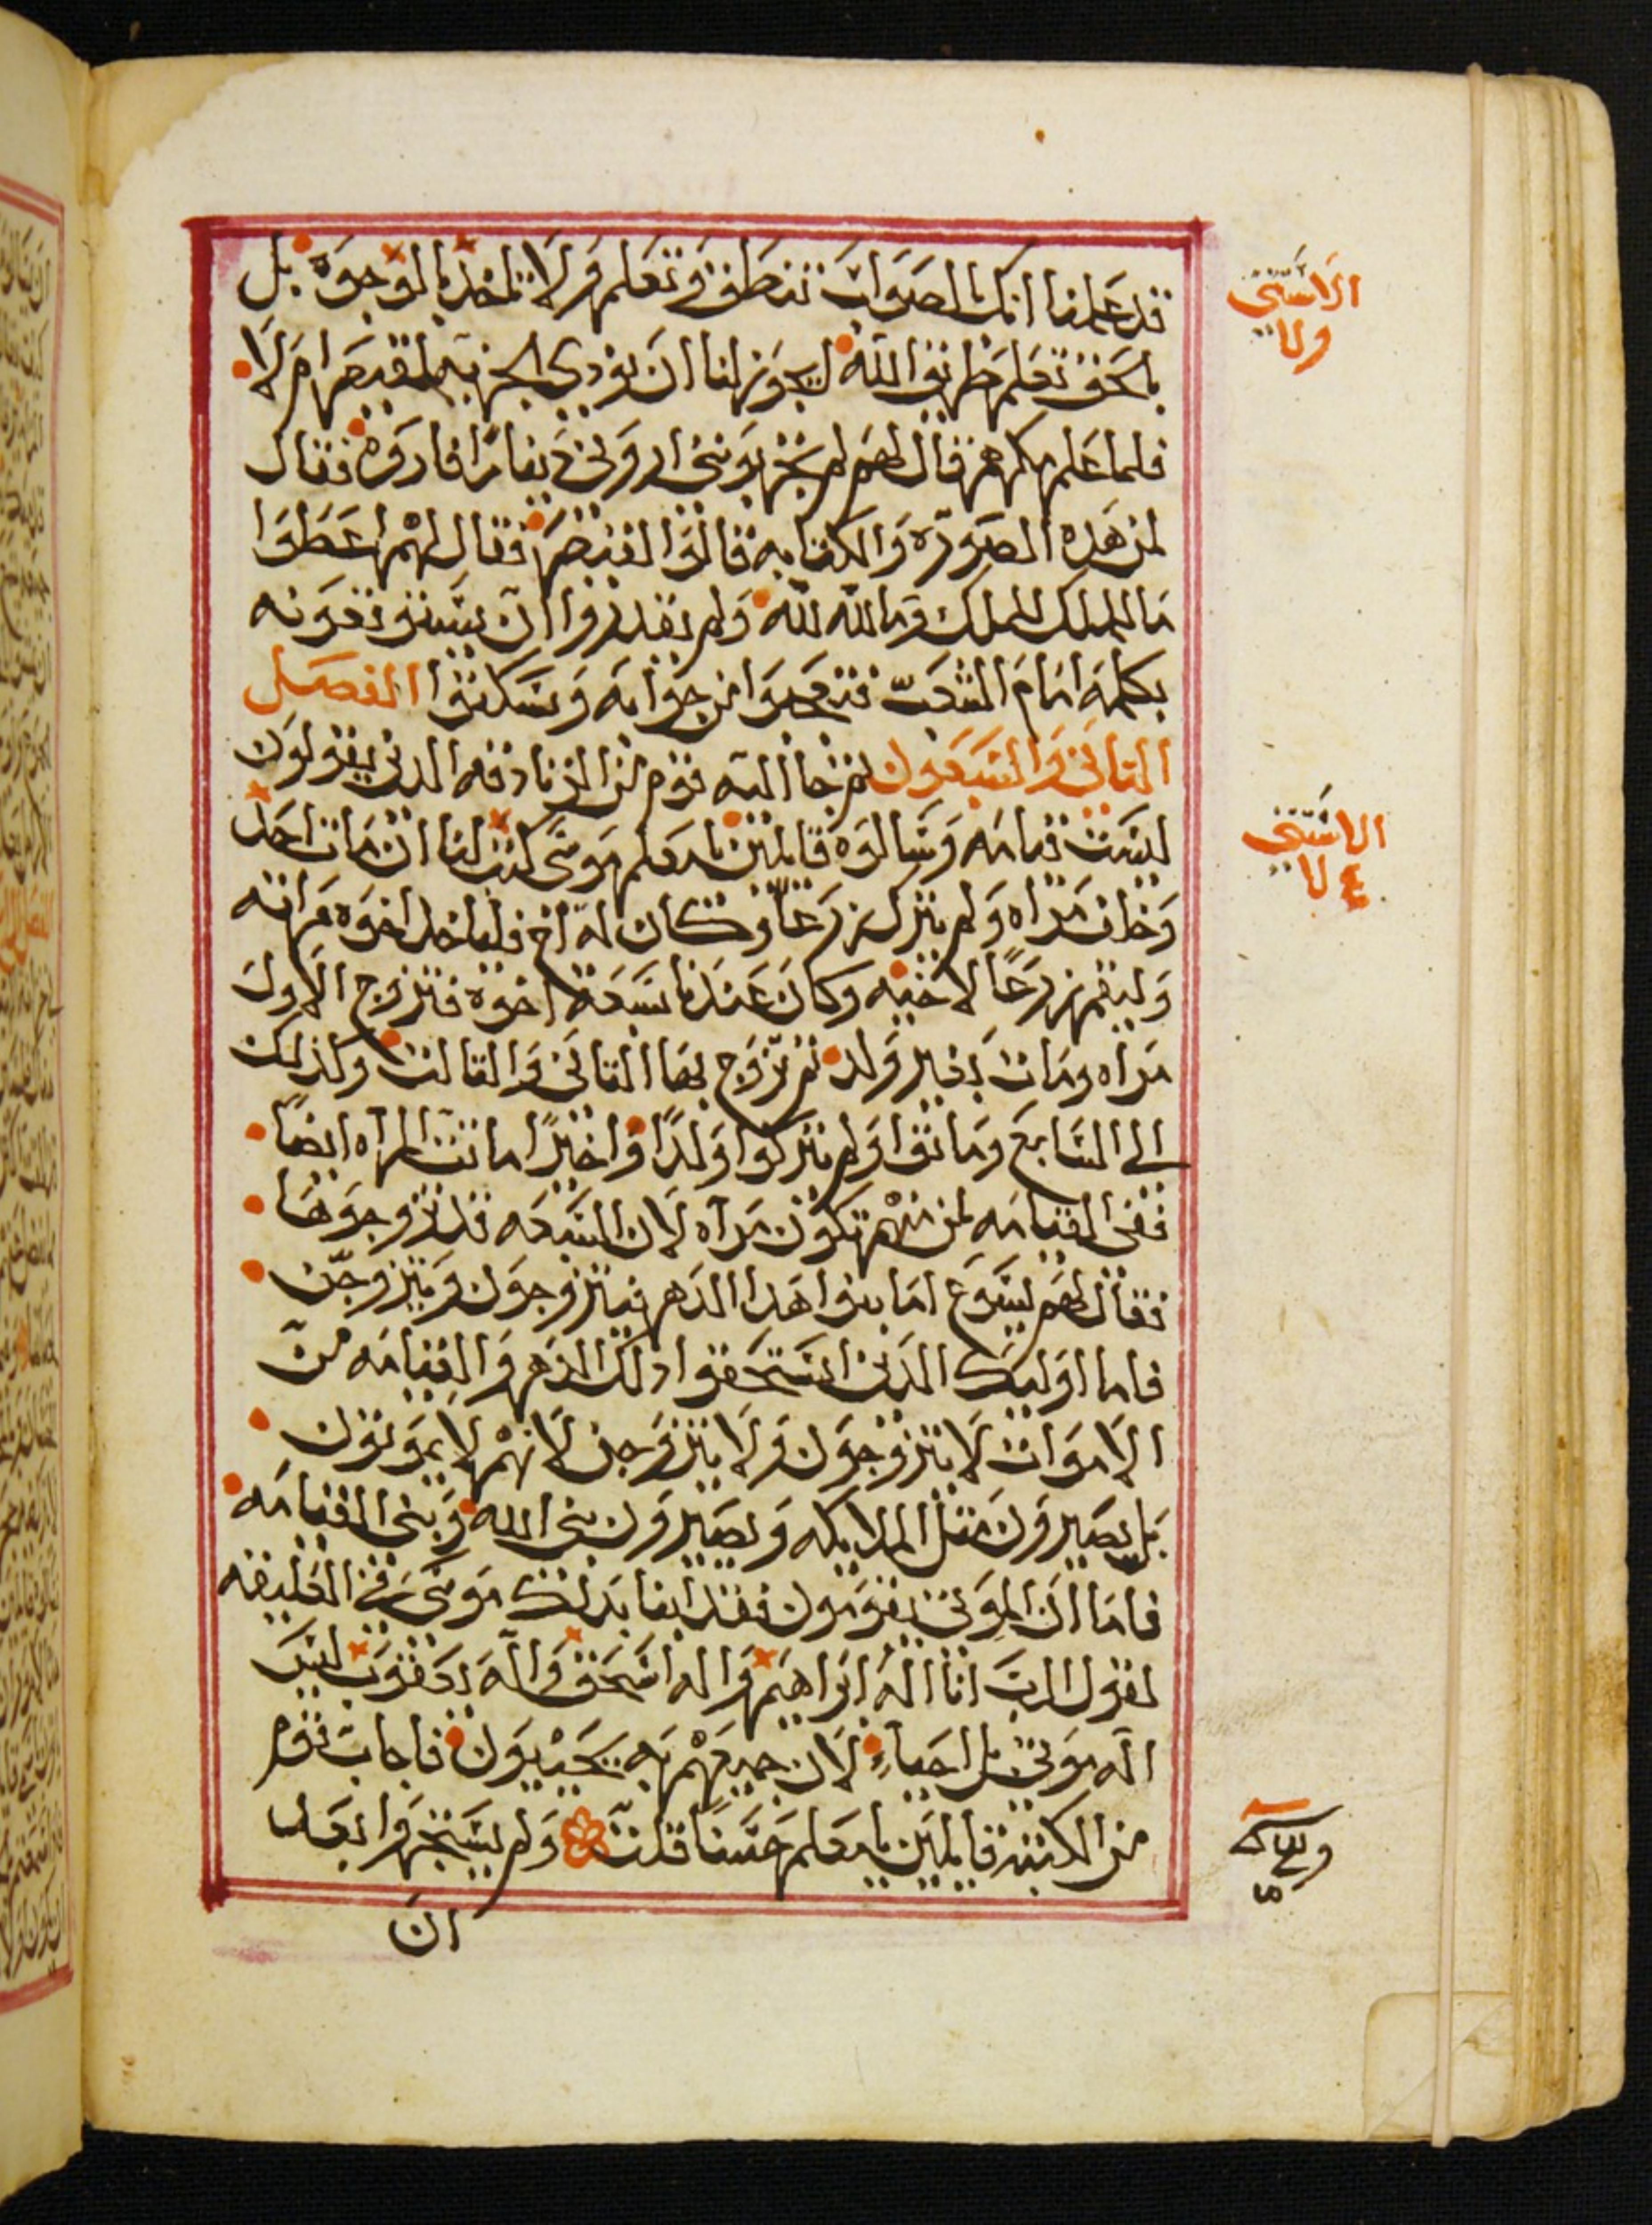 قد علمنا انك بالصواب تنطق وتعلم ولا تاخد بالوجوه بل
بالحق تعلم طريق الله ايجوز لنا ان نودي الجزيه لقيصر ام لا
فلما علم مكرهم قال لهم لم تجربوني اروني دينارا فاروه فقال
لمن هده الصورة والكتابه قالوا لقيصر فقال لهم اعطوا
ما للملك للملك وما لله لله ولم يقدروا ان يستنوقفونه
بكلمه امام الشعب فتعجبوا من جوابه وسكتوا الفصل
التاني والسبعون ثم جا اليه قوم من الزنادقه الدين يقولون
ليست قيامه وسالوه قايلين يا معلم موسى كتب لنا ان مات احد
وخلف مراه ولم يترك زرعا وكان له اخ فلياخد اخوه مراته
وليقم زرعا لاخيه وكان عندنا سبعة اخوة فتزوج الاول
مراه ومات بغير ولد ثم تزوج بها الثاني والثالث وكذلك
الي السابع وماتوا ولم يتركوا ولدا واخيرا ماتت المراه ايضا
ففي القيامه لمن منهم تكون مراه لان السبعه قد تزوجوها
فقال لهم يسوع اما بنوا هدا الدهر فيتزوجون ويتزوجن
فاما اوليك الدين استحقوا دلك الدهر والقيامه من
الاموات لا يتزوجون ولا يتزوجن لانهم لا يموتون
بل يصيرون مثل الملايكه ويصيرون بني الله وبني القيامه
فاما ان الموتي يقومون فقد انبا بدلك موسى في العليقه
لقول الرب انا اله ابراهيم واله اسحق واله يعقوب ليس
اله موتي بل احياء لان جميعهم به يحييون فاجاب قوم
من الكتبه قايلين يا معلم حسنا قلت ولم يستجروا بعد
ان
الاستثني
الاستثني